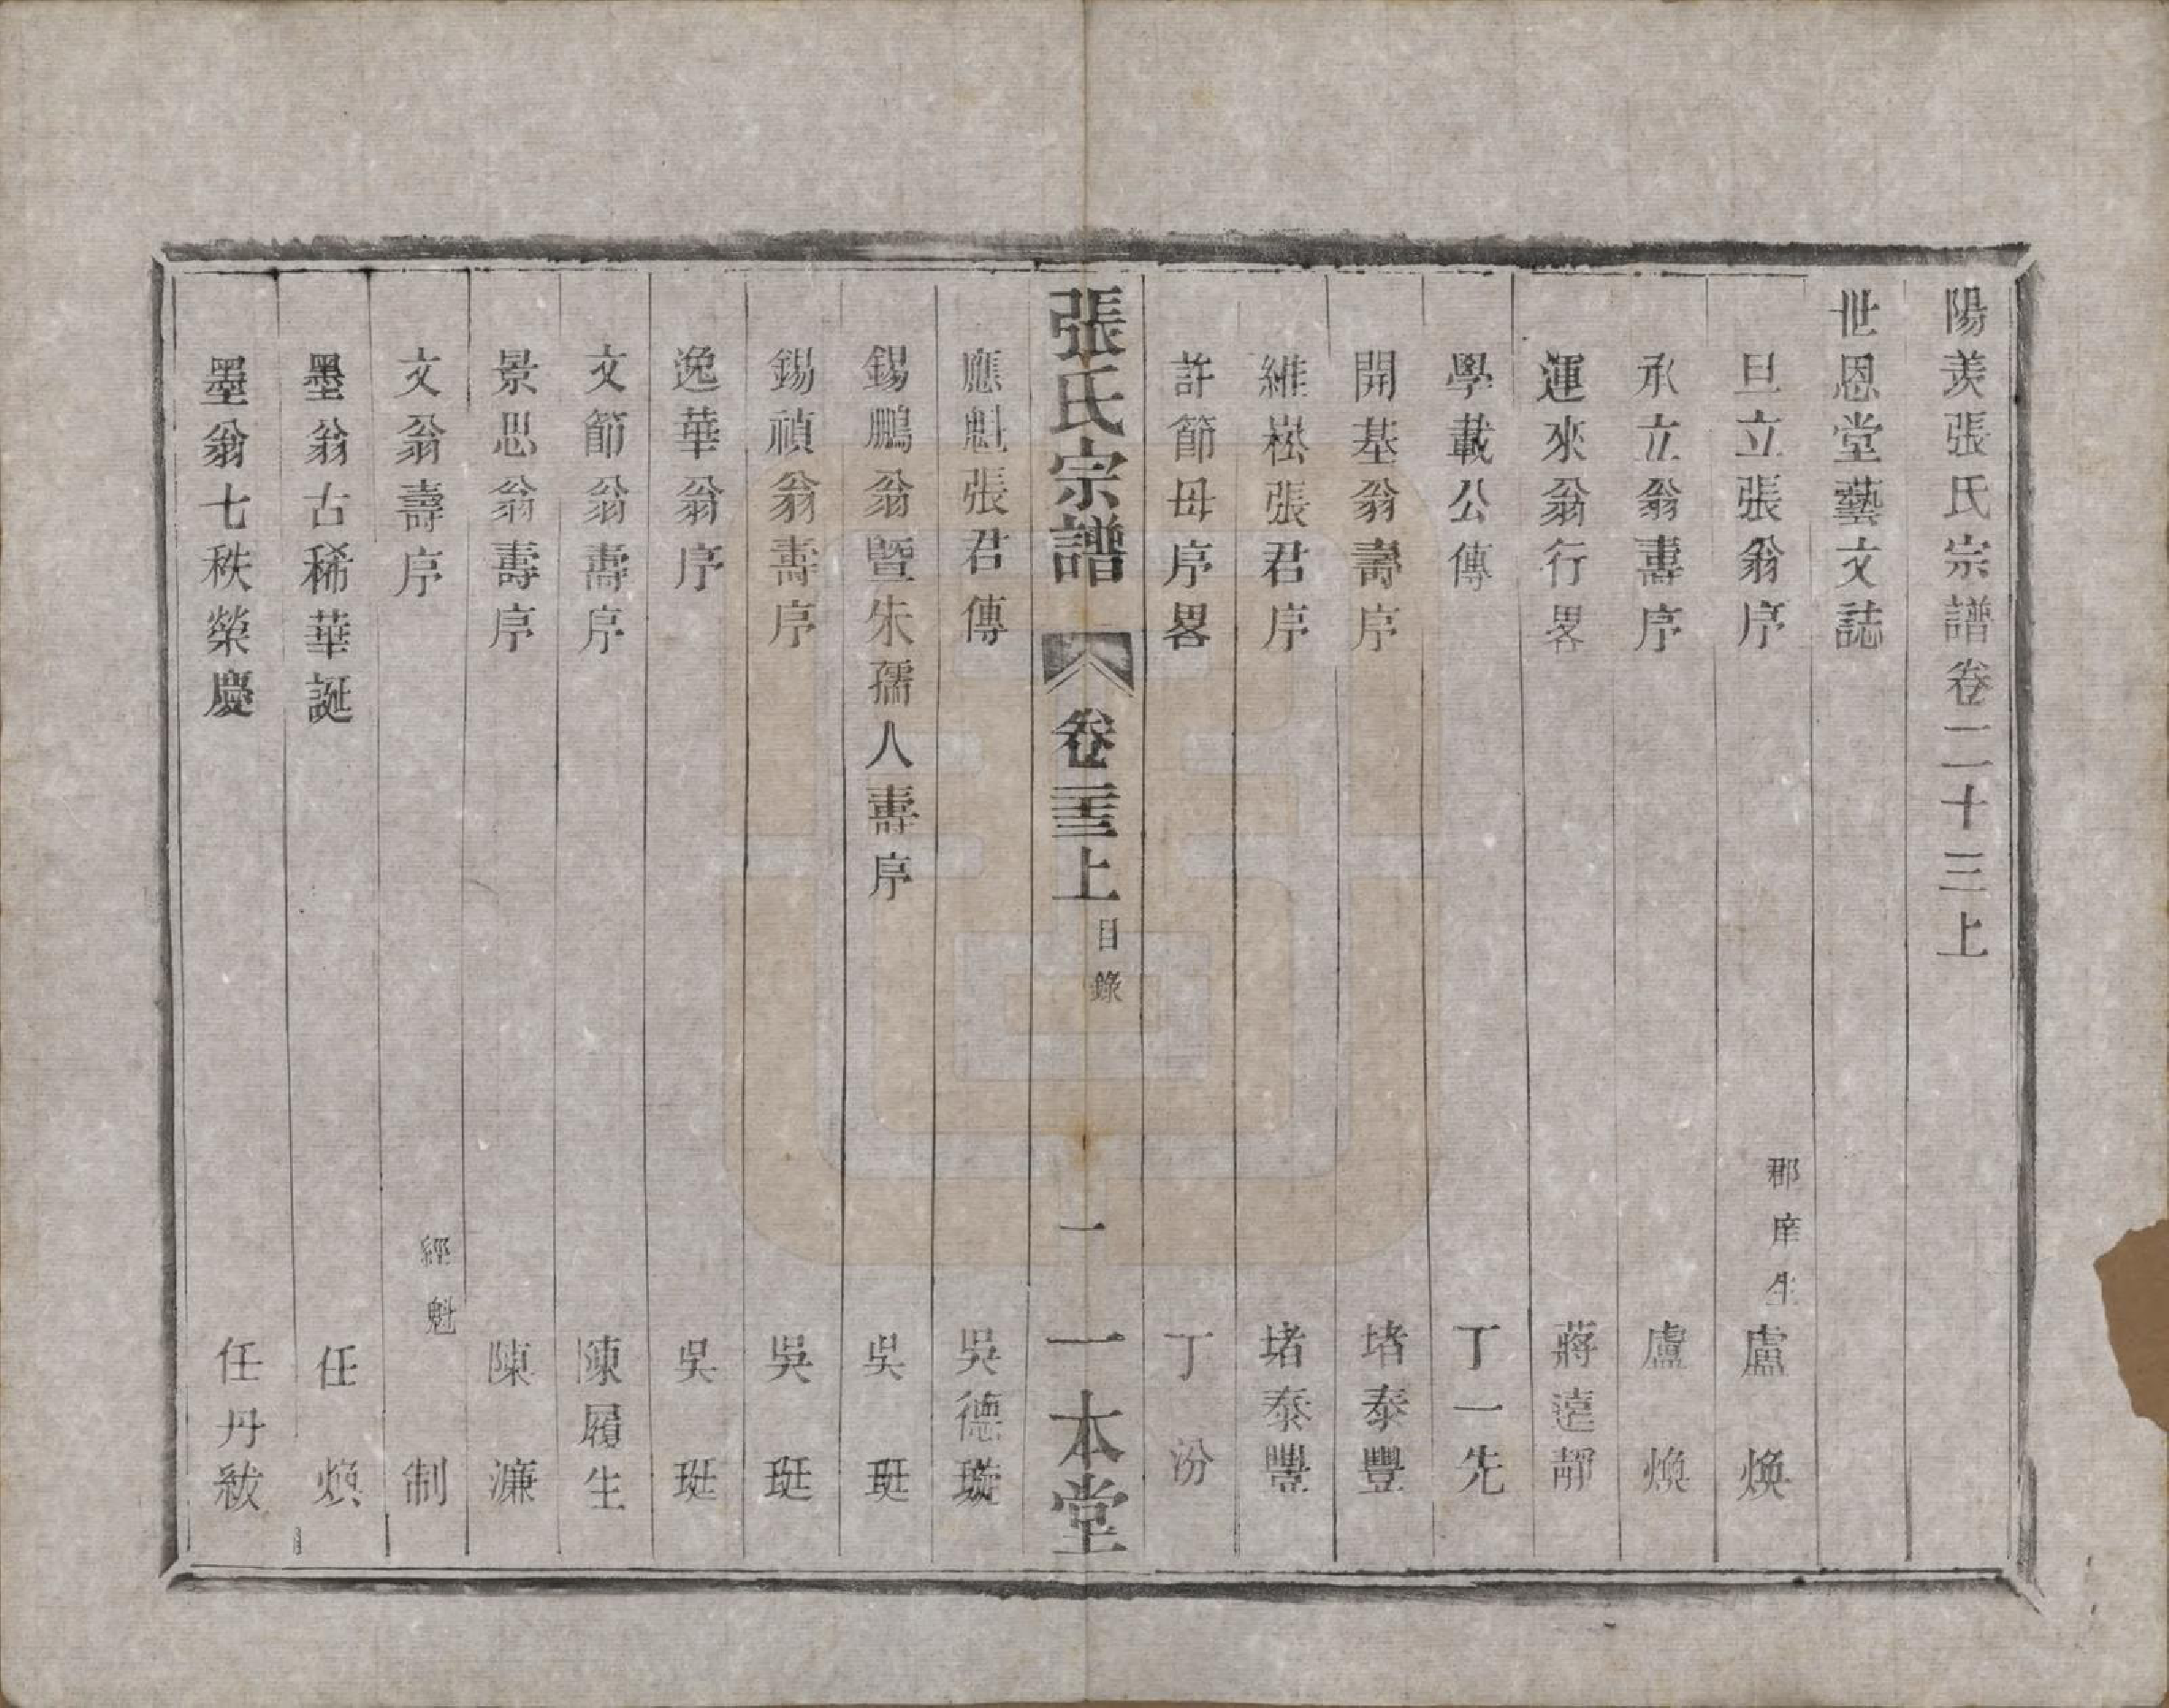 陽羨張氏宗譜卷二十三上
世恩堂藝文誌
旦立張翁序　郡庠生　盧　煥
承立翁壽序　盧　煥
運來翁行畧　蔣遠靜
學載公傳　丁一先
開基翁壽序　堵泰豐
維崧張君序　堵泰豐
許節母序畧　丁　汾
張氏宗譜　卷二十三上　目錄　一　一本堂
應魁張君傳　吳德璇
錫鵬翁暨朱孺人壽序　吳　珽
錫禎翁壽序　吳　珽
逸華翁序　吳　珽
文節翁壽序　陳履生
景思翁壽序　陳　濂
文翁壽序　經魁　制
墨翁古稀華誕　任　煥
墨翁七秩榮慶　任丹紱